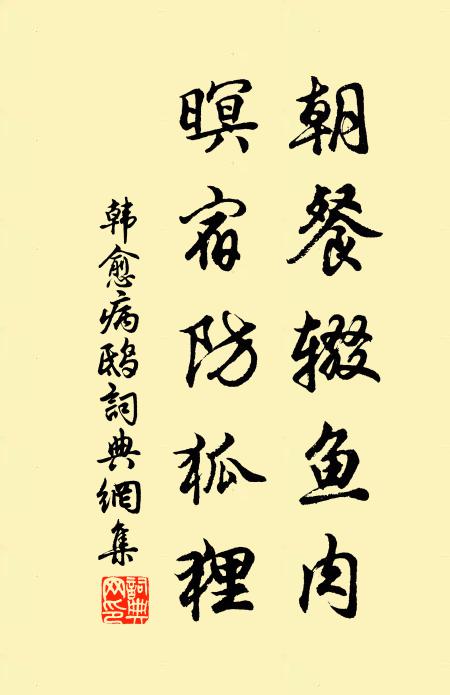 朝餐辍鱼肉
暝宿防狐狸
韩愈病鸱詞典網集
詞典网印